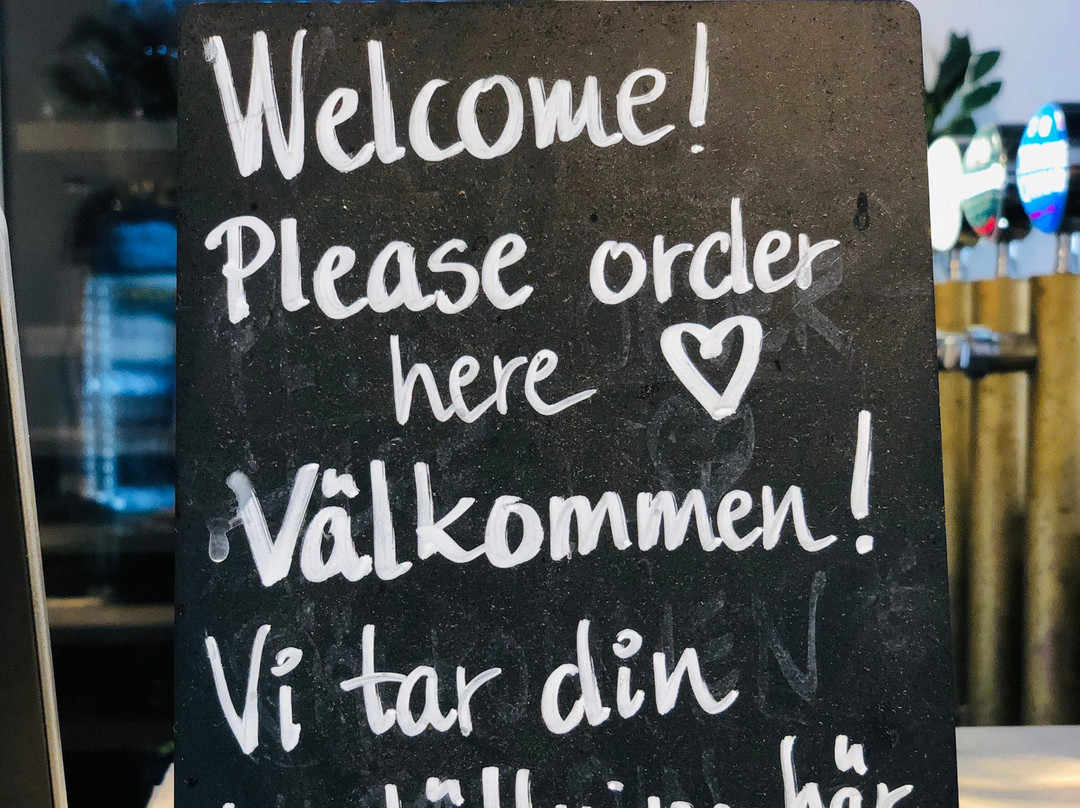 Welcome!
Please order
here ♡
Välkommen!
Vi tar din
beställning här